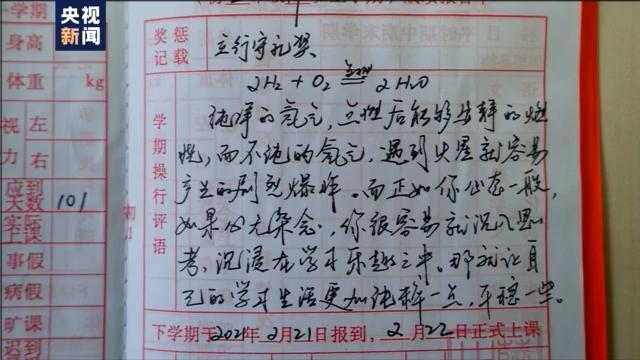 央视
新闻
学期
身高
体重 kg
视 左
力 右
应到
天数 101
实际
上课
事假
病假
旷课
迟到
奖惩
记载
立行守礼奖
2H₂ + O₂ 点燃 2H₂O
学期操行评语
纯净的氢气，点燃后能够安静的燃
烧，而不纯的氢气，遇到火星就容易
产生的剧烈爆炸。而正如你心态一般，
如果心无杂念，你很容易就沉入思
考，沉浸在学习乐趣之中。那就让自
己的学习生活更加纯粹一点，平稳一些。
下学期于2021年2月21日报到，2月22日正式上课